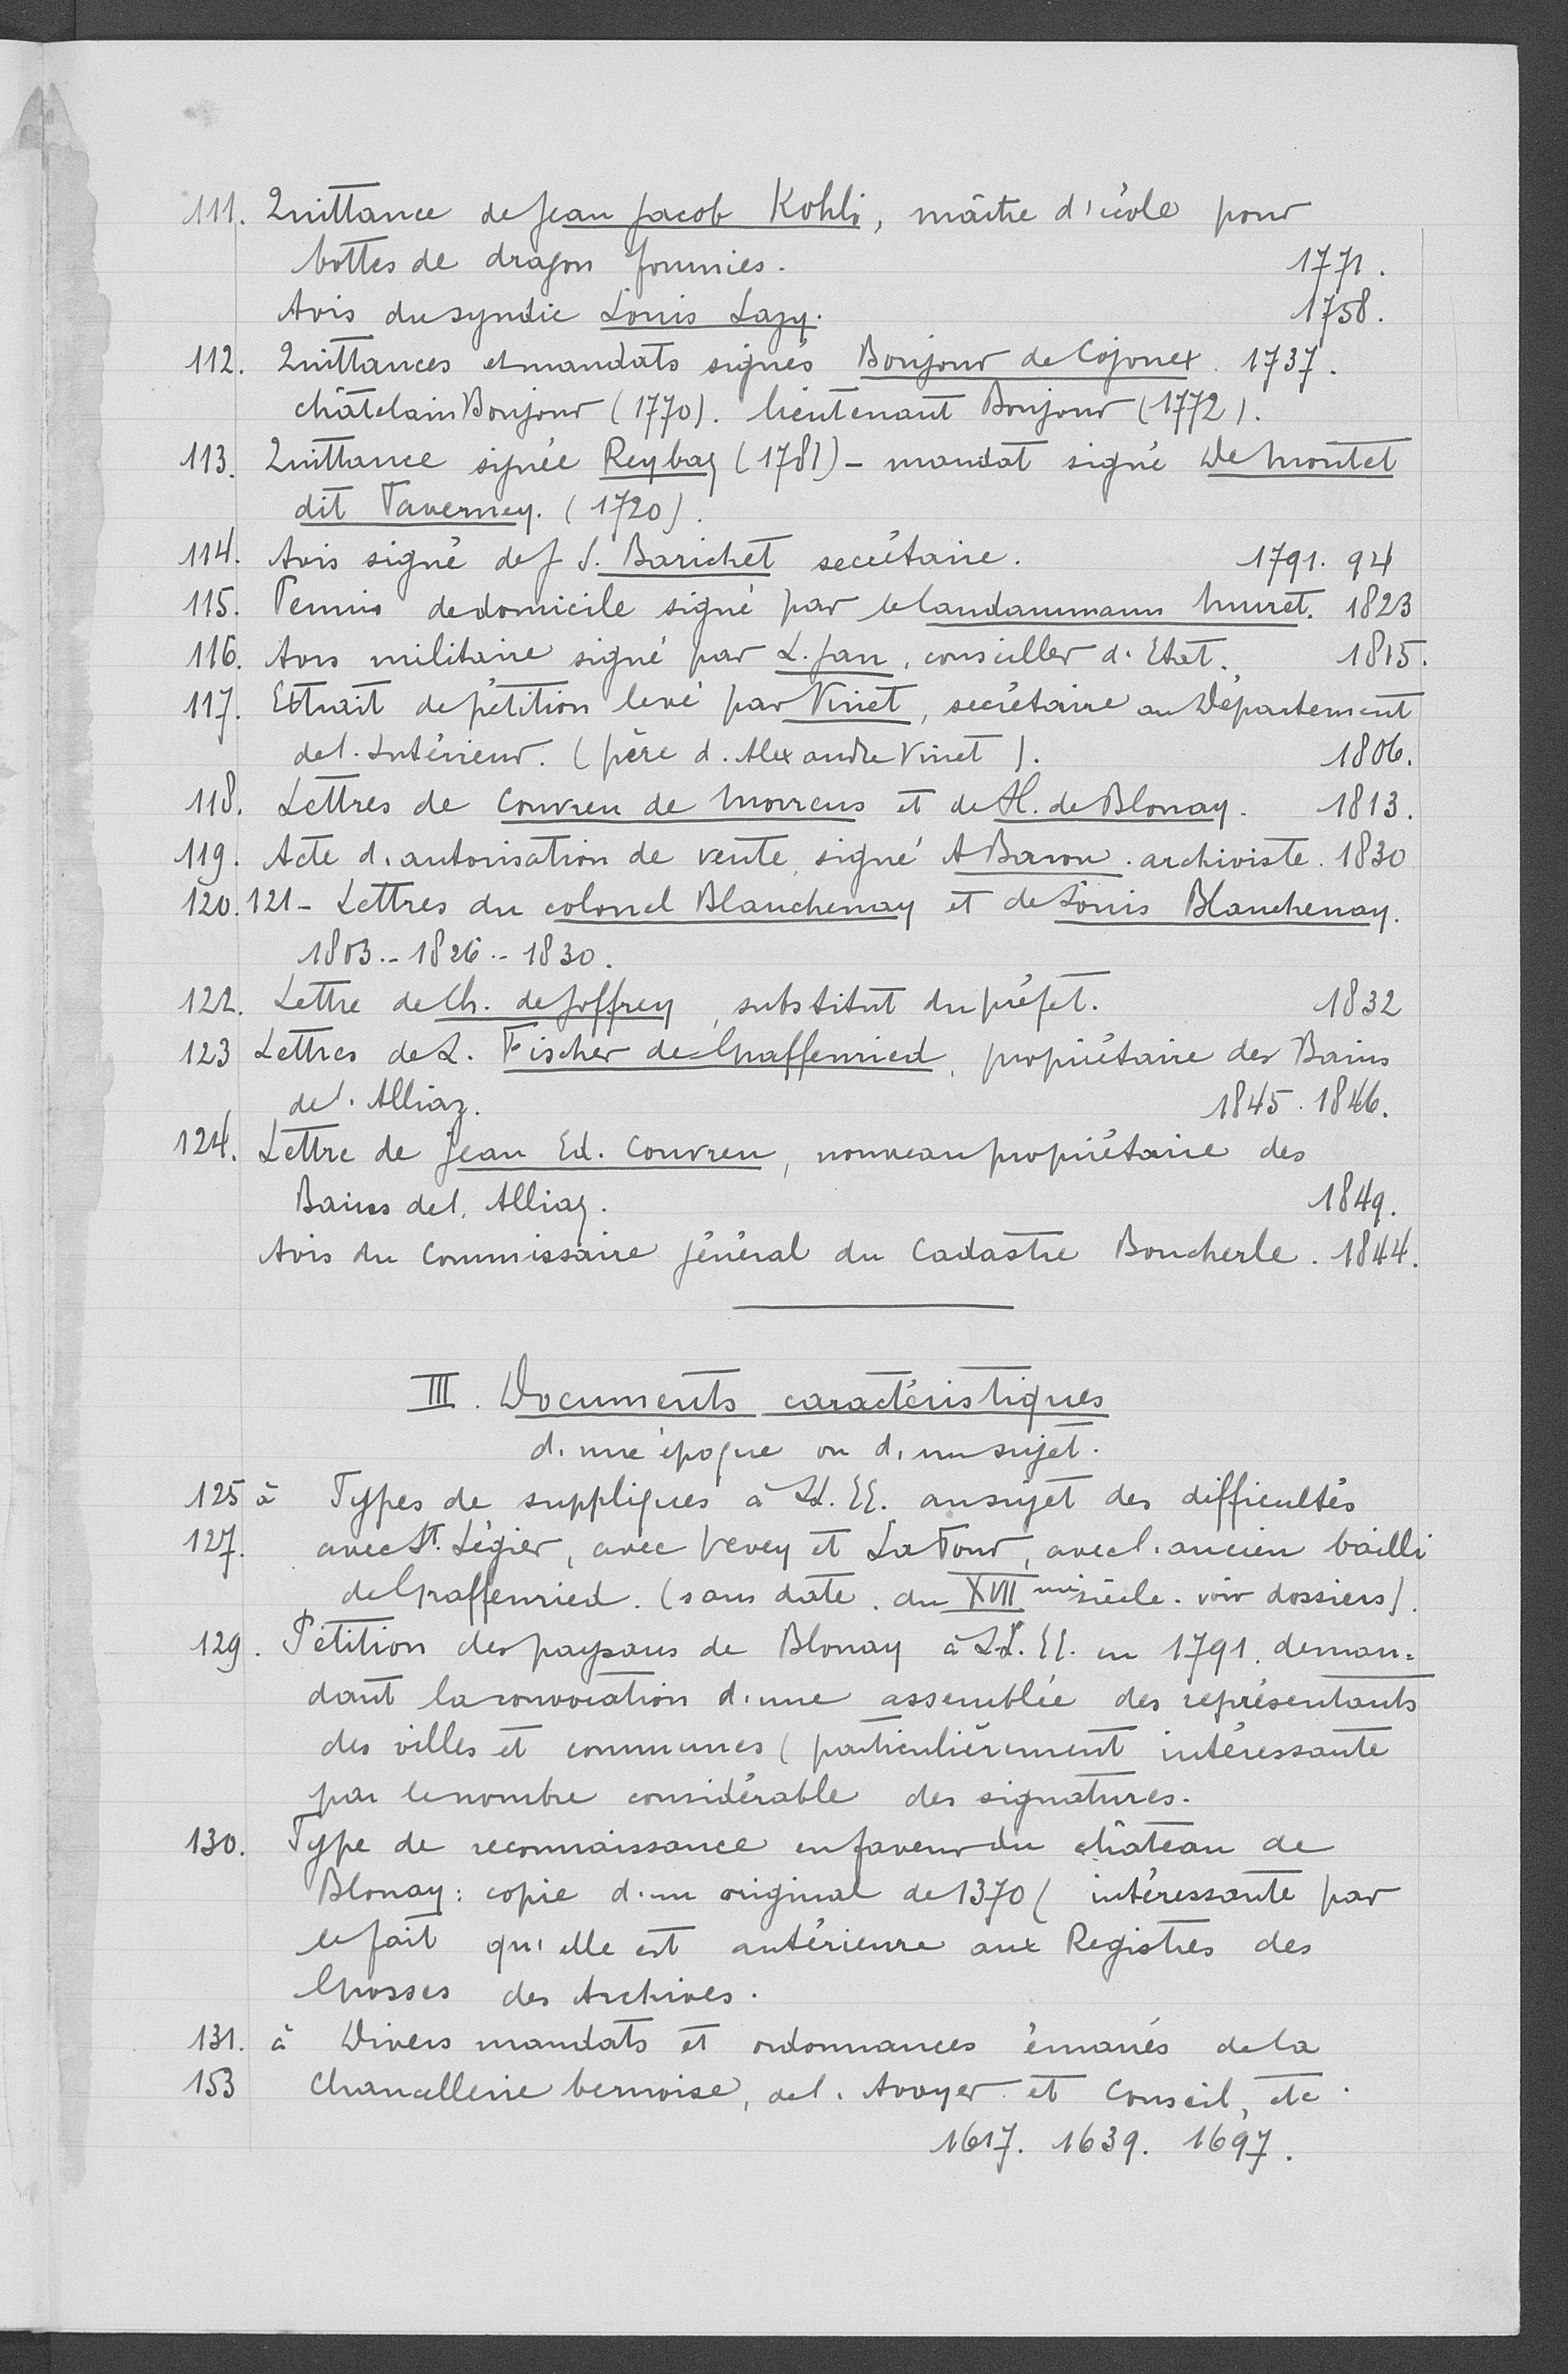 111. Quittance de Jean Jacob Kohli, maître d'école pour
bottes de dragon fournies. 1771.
Avis du syndic Louis Lazy. 1758.
112. Quittances et mandats signés Bonjour de Cojonex. 1737.
châtelain Bonjour (1770). lieutenant Bonjour (1772).
113. Quittance signée Reybaz (1781) - mandat signé De Montet
dit Taverney. (1720).
114. Avis signé de J S. Barichet secrétaire. 1791. 94
115. Permis de domicile signé par le landammann Muret. 1823
116. Avis militaire signé par L. Jan, conseiller d'Etat. 1815.
117. Extrait de pétition levé par Vinet, secrétaire au Département
de l'Intérieur. (père d'Alexandre Vinet). 1806.
118. Lettres de Couvreu de Morrens et de H. de Blonay. 1813.
119. Acte d'autorisation de vente, signé A Baron. archiviste. 1830
120. 121 - Lettres du colonel Blanchenay et de Louis Blanchenay.
1803.- 1826.- 1830.
122. Lettre de Ch. de Joffrey, substitut du préfet. 1832
123 Lettres de L. Fischer de Graffenried, propriétaire des Bains
de l'Alliaz. 1845. 1846.
124. Lettre de Jean Ed. Couvreu, nouveau propriétaire des
Bains de l'Alliaz. 1849.
Avis du Commissaire général du Cadastre Boucherle. 1844.
III. Documents caractéristiques
d'une époque ou d'un sujet.
125 à Types de suppliques à LL. EE. au sujet des difficultés
127. avec St. Légier, avec Vevey et La Tour, avec l'ancien bailli
de Graffenried. (sans date. du XVII me siècle. voir dossiers).
129. Pétition des paysans de Blonay à LL. EE. en 1791. deman=
dant la convocation d'une assemblée des représentants
des villes et communes (particulièrement intéressante
par le nombre considérable des signatures.
130. Type de reconnaissance en faveur du château de
Blonay: copie d'un original de 1370 (intéressante par
le fait qu'elle est antérieure aux Registres des
Grosses des Archives.
131. à Divers mandats et ordonnances émanés de la
153 Chancellerie bernoise, de l'Avoyer et Conseil, etc.
1617. 1639. 1697.